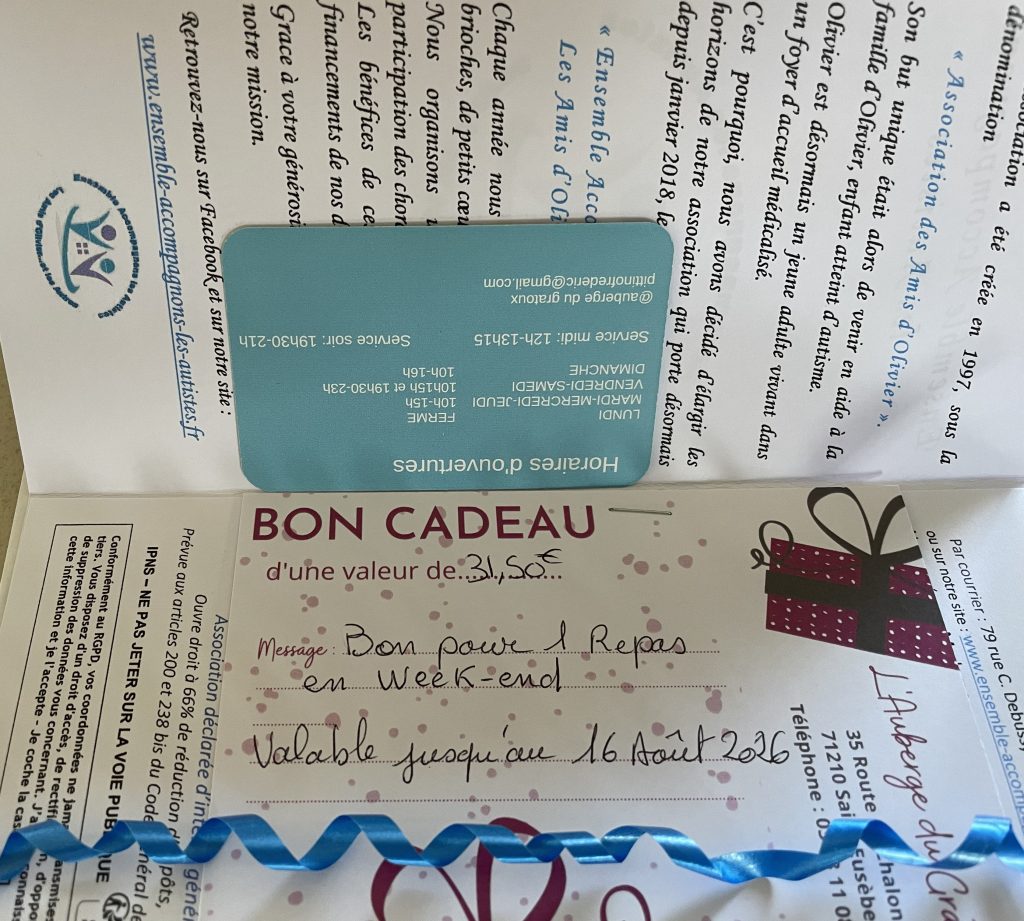 dénomination a été créée en 1997, sous la
« Association des Amis d'Olivier ».
Son but unique était alors de venir en aide à la
famille d'Olivier, enfant atteint d'autisme.
Olivier est désormais un jeune adulte vivant dans
un foyer d'accueil médicalisé.
C'est pourquoi, nous avons décidé d'élargir les
horizons de notre association qui porte désormais
depuis janvier 2018, le
« Ensemble Acc
Les Amis d'Oli
Chaque année nous
brioches, de petits
Nous organisons
participation des
Les bénéfices de
financements de nos
Grace à votre
notre mission.
Retrouvez-nous sur Facebook et sur notre site :
www.ensemble-accompagnons-les-autistes.fr
Ensemble Accompagnons les Autistes
Horaires d'ouvertures
LUNDI FERME
MARDI-MERCREDI-JEUDI 10h-15h
VENDREDI-SAMEDI 10h15h et 19h30-23h
DIMANCHE 10h-16h
Service midi: 12h-13h15 Service soir: 19h30-21h
@auberge du gratoux
pittinofrederic@gmail.com
BON CADEAU
d'une valeur de...31,50€...
Message : Bon pour 1 Repas
en Week-end
Valable jusqu'au 16 Août 2026
L'Auberge du
35 Route
71210
Téléphone :
par courrier : 79 rue C. Debussy
ou sur notre site : www.ensemble-accomp
Association déclarée d'
Ouvre droit à 66% de réduction
Prévue aux articles 200 et 238 bis du Code
IPNS – NE PAS JETER SUR LA VOIE PUBLIQUE
Conformément au RGPD, vos coordonnées ne
tiers. Vous disposez d'un droit d'accès, de
de suppression des données vous concernant.
cette information et je l'accepte - Je coche la